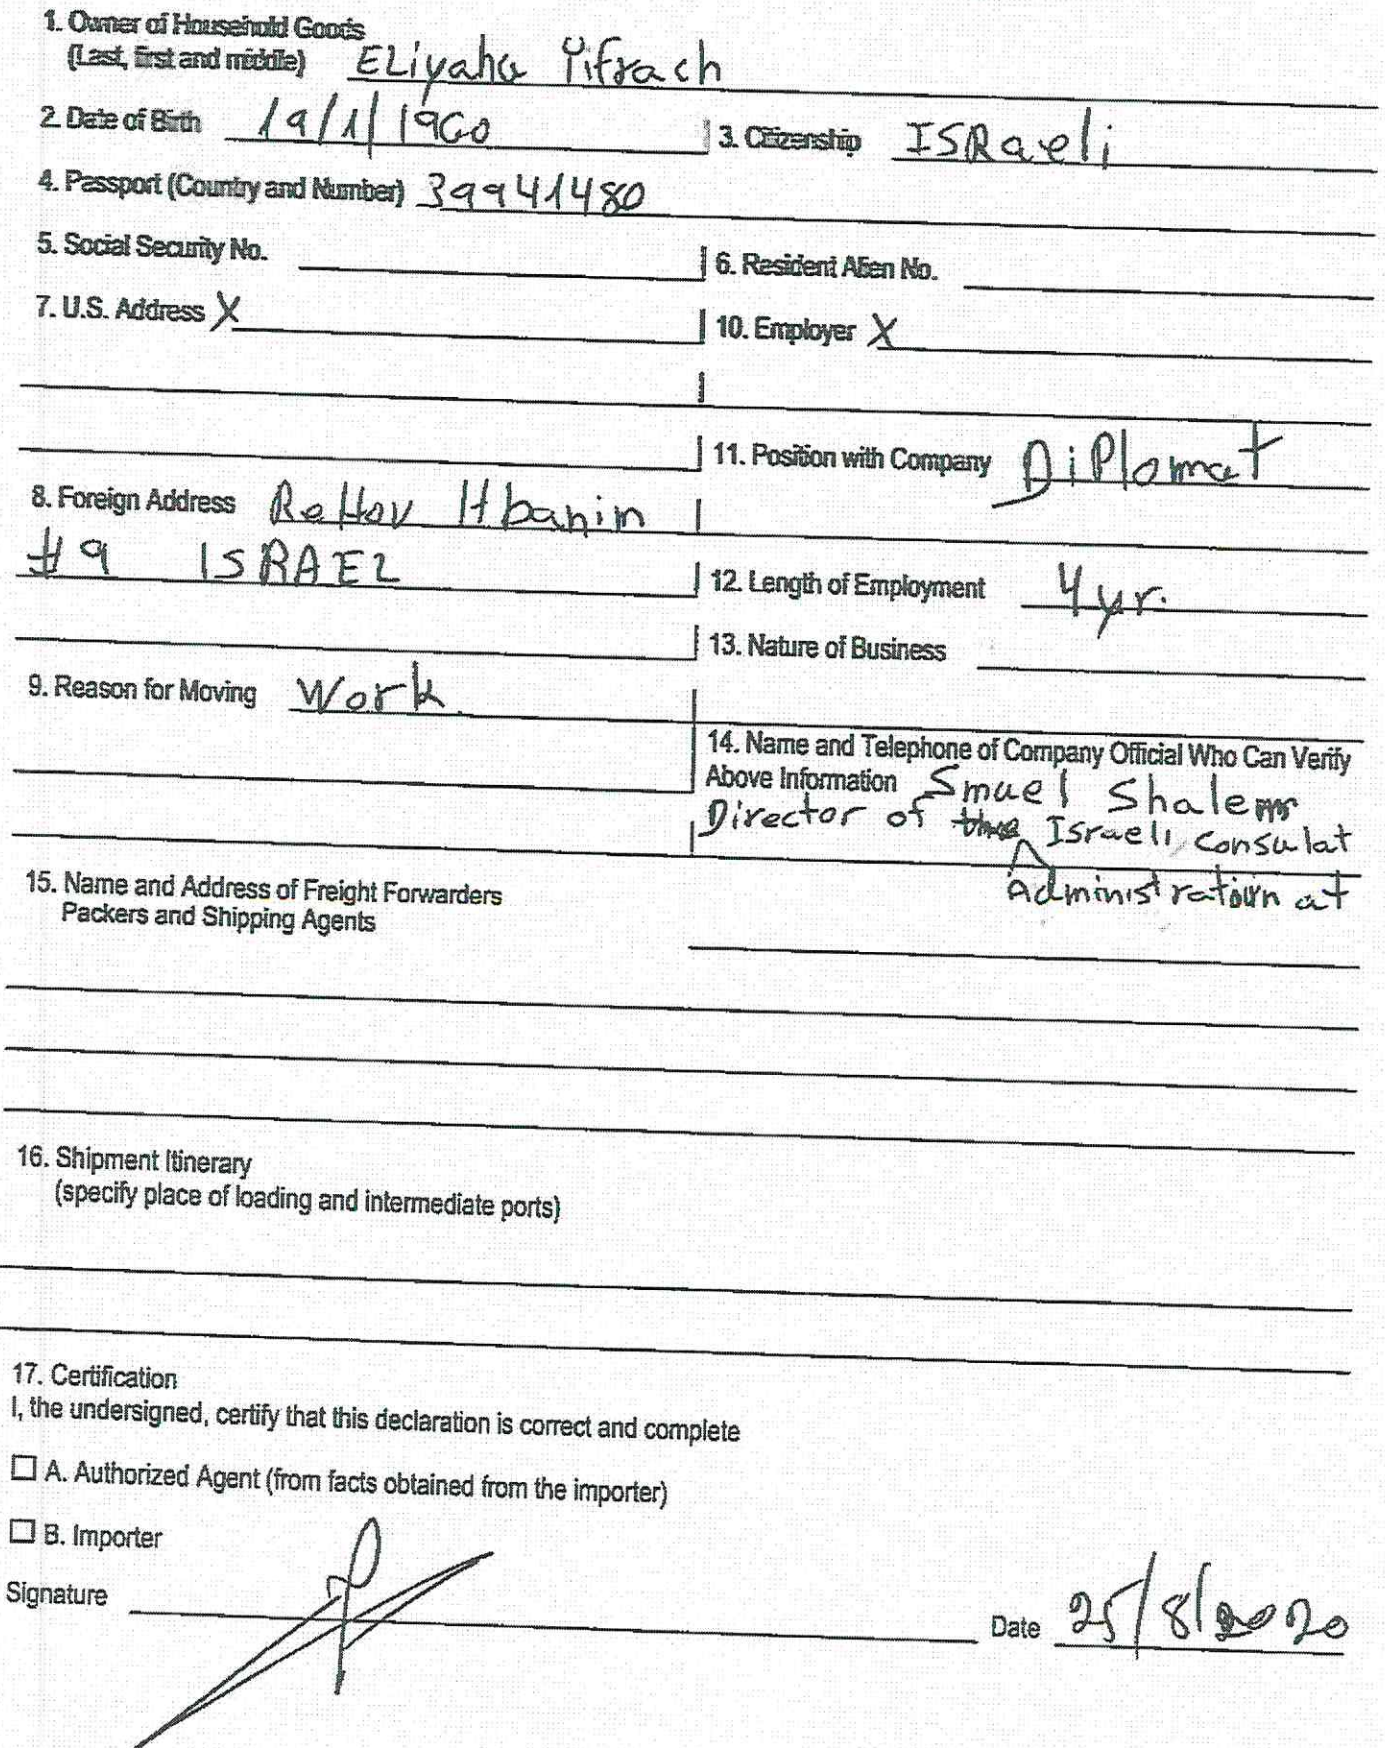 1. Owner of Household Goods
(Last, first and middle) ELiyahu Yifrach
2. Date of Birth 19/1/1960 3. Citizenship ISRaeli
4. Passport (Country and Number) 39941480
5. Social Security No. 6. Resident Alien No.
7. U.S. Address X 10. Employer X
11. Position with Company DiPlomat
8. Foreign Address ReHov Hbanim
#9 ISRAEL
12. Length of Employment 4 yr.
13. Nature of Business
9. Reason for Moving Work
14. Name and Telephone of Company Official Who Can Verify
Above Information Smuel Shalem
Director of the Israeli consulat
Administration at
15. Name and Address of Freight Forwarders
Packers and Shipping Agents
16. Shipment Itinerary
(specify place of loading and intermediate ports)
17. Certification
I, the undersigned, certify that this declaration is correct and complete
A. Authorized Agent (from facts obtained from the importer)
B. Importer
Signature Date 25/8/2020